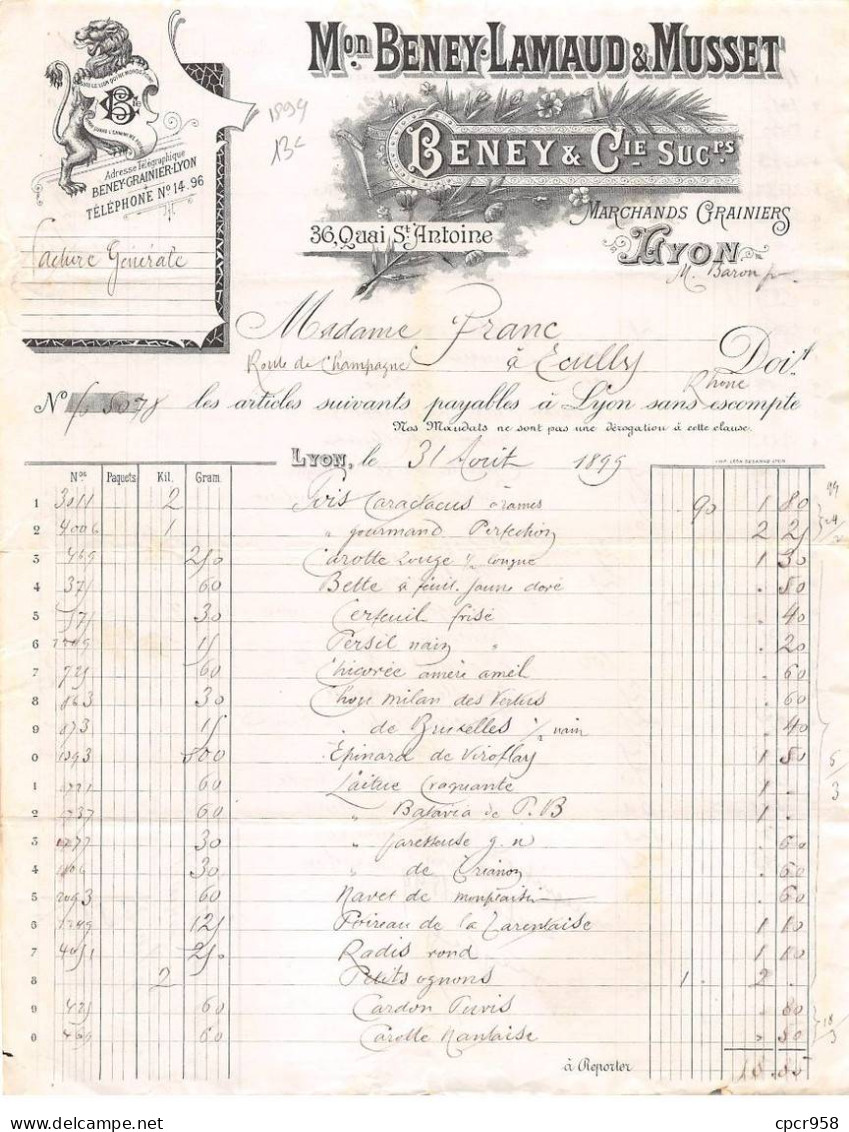 Mon. BENEY-LAMAUD & MUSSET
BENEY & CIE SUCrs
MARCHANDS GRAINIERS
36, Quai St Antoine
LYON
M. Baron
1899
13c
Adresse Télégraphique
BENEY-GRAINIER-LYON
TÉLÉPHONE No 14.96
Facture Générale
Madame Franc Doit
Route de Champagne à Ecully
Rhône
No les articles suivants payables à Lyon sans escompte
Nos Mandats ne sont pas une dérogation à cette clause.
LYON, le 31 Août 1899
Nos Paquets Kil. Gram.
1 3011 2 Pois Caractacus à rames 90 1 80
2 4006 1 " gourmand Perfection 2 25
3 469 250 Carotte rouge ½ longue 1 30
4 375 60 Bette à feuil. jaune doré . 50
5 575 30 Cerfeuil frisé . 40
6 15 Persil nain " . 20
7 725 60 Chicorée amère amél . 60
8 863 30 Chou milan des Vertus . 60
9 873 15 " de Bruxelles ½ nain . 40
0 1393 500 Epinard de Viroflay 1 50
1 1721 60 Laitue Craquante 1 .
2 1737 60 " Batavia de P.B 1 .
3 1777 30 " paresseuse g. n . 60
4 1806 30 " de Trianon . 60
5 2093 60 Navet de . 60
6 125 Poireau de la Tarentaise 1 10
7 4051 250 Radis rond 1 10
8 2 Petits ognons 1 . 2 .
9 425 60 Cardon Puvis . 80
0 469 60 Carotte Nantaise . 50
à Reporter 18.05
cpcr958